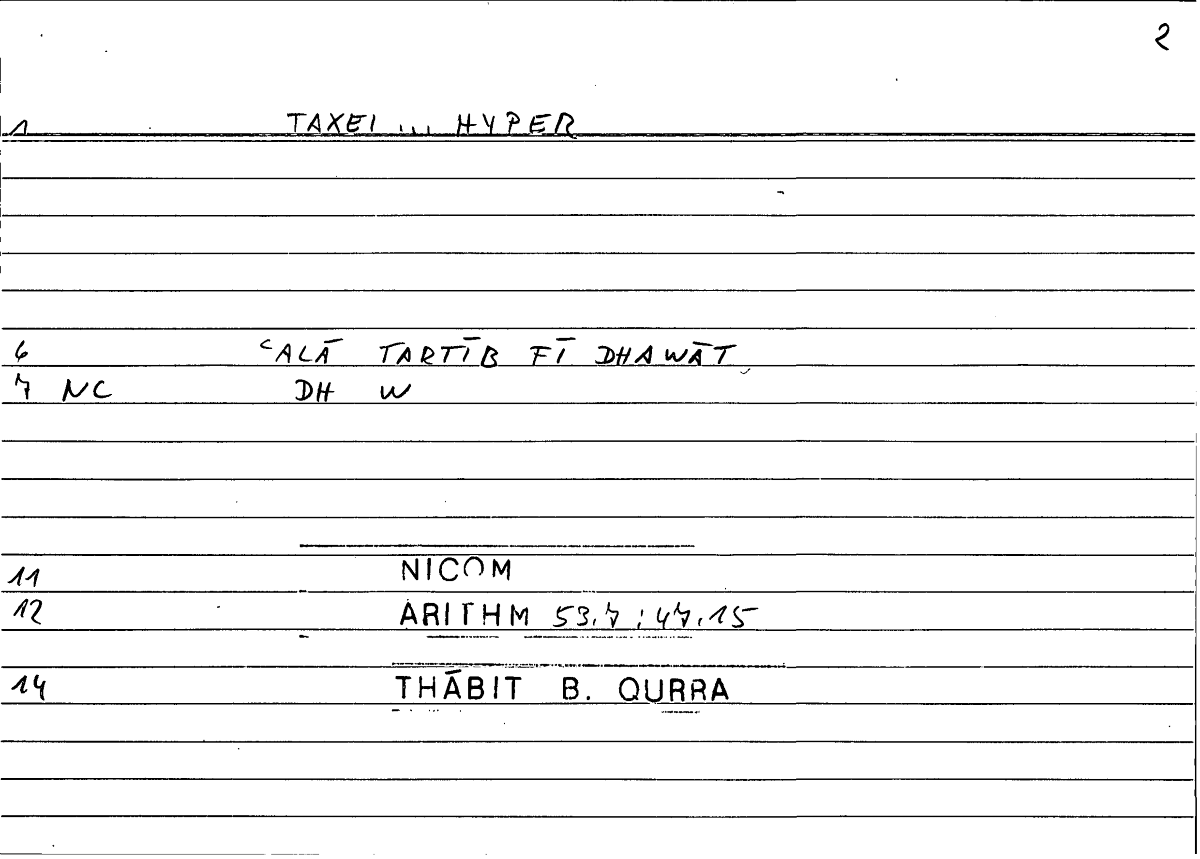 2
1 TAXEI ... HYPER
6 ʿALĀ TARTĪB FĪ DHAWĀT
7 NC DH W
11 NICOM
12 ARITHM 53.7 ; 47.15
14 THĀBIT B. QURRA